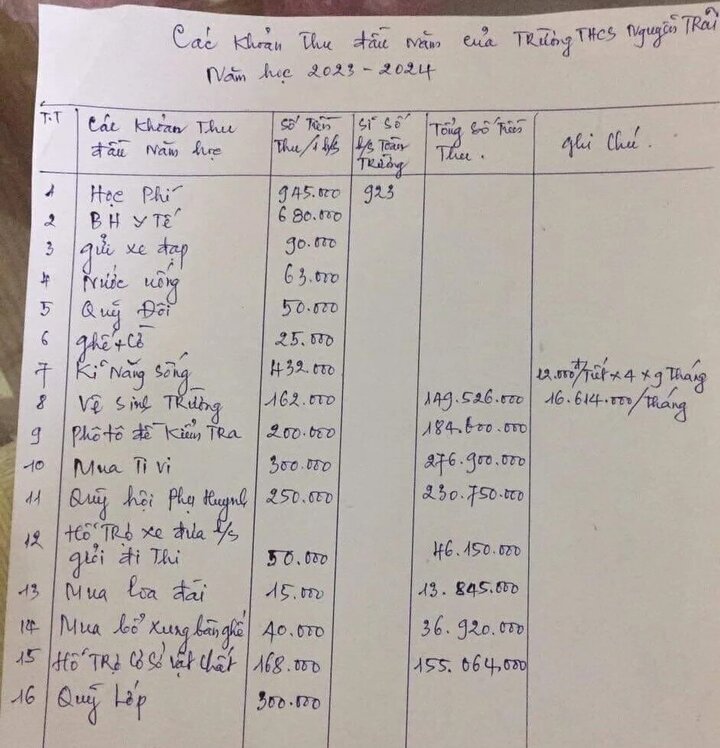 Các Khoản Thu đầu năm của Trường THCS Nguyễn Trãi
Năm học 2023 - 2024
T.T Các Khoản Thu đầu năm học Số Tiền Thu/1 h/s Sĩ Số h/s Toàn Trường Tổng Số Tiền Thu. Ghi Chú.
1 Học Phí 945.000 923
2 BH y Tế 680.000
3 gửi xe đạp 90.000
4 Nước uống 63.000
5 Quỹ Đội 50.000
6 ghế + Cờ 25.000
7 Kĩ Năng Sống 432.000 12.000đ/Tiết x 4 x 9 Tháng
8 Vệ Sinh Trường 162.000 149.526.000 16.614.000/Tháng
9 Phô tô đề Kiểm Tra 200.000 184.600.000
10 Mua Ti vi 300.000 276.900.000
11 Quỹ hội Phụ Huynh 250.000 230.750.000
12 Hỗ Trợ xe đưa h/s giỏi đi Thi 50.000 46.150.000
13 Mua loa đài 15.000 13.845.000
14 Mua bổ xung bàn ghế 40.000 36.920.000
15 Hỗ Trợ Cơ Sở Vật Chất 168.000 155.064.000
16 Quỹ Lớp 300.000